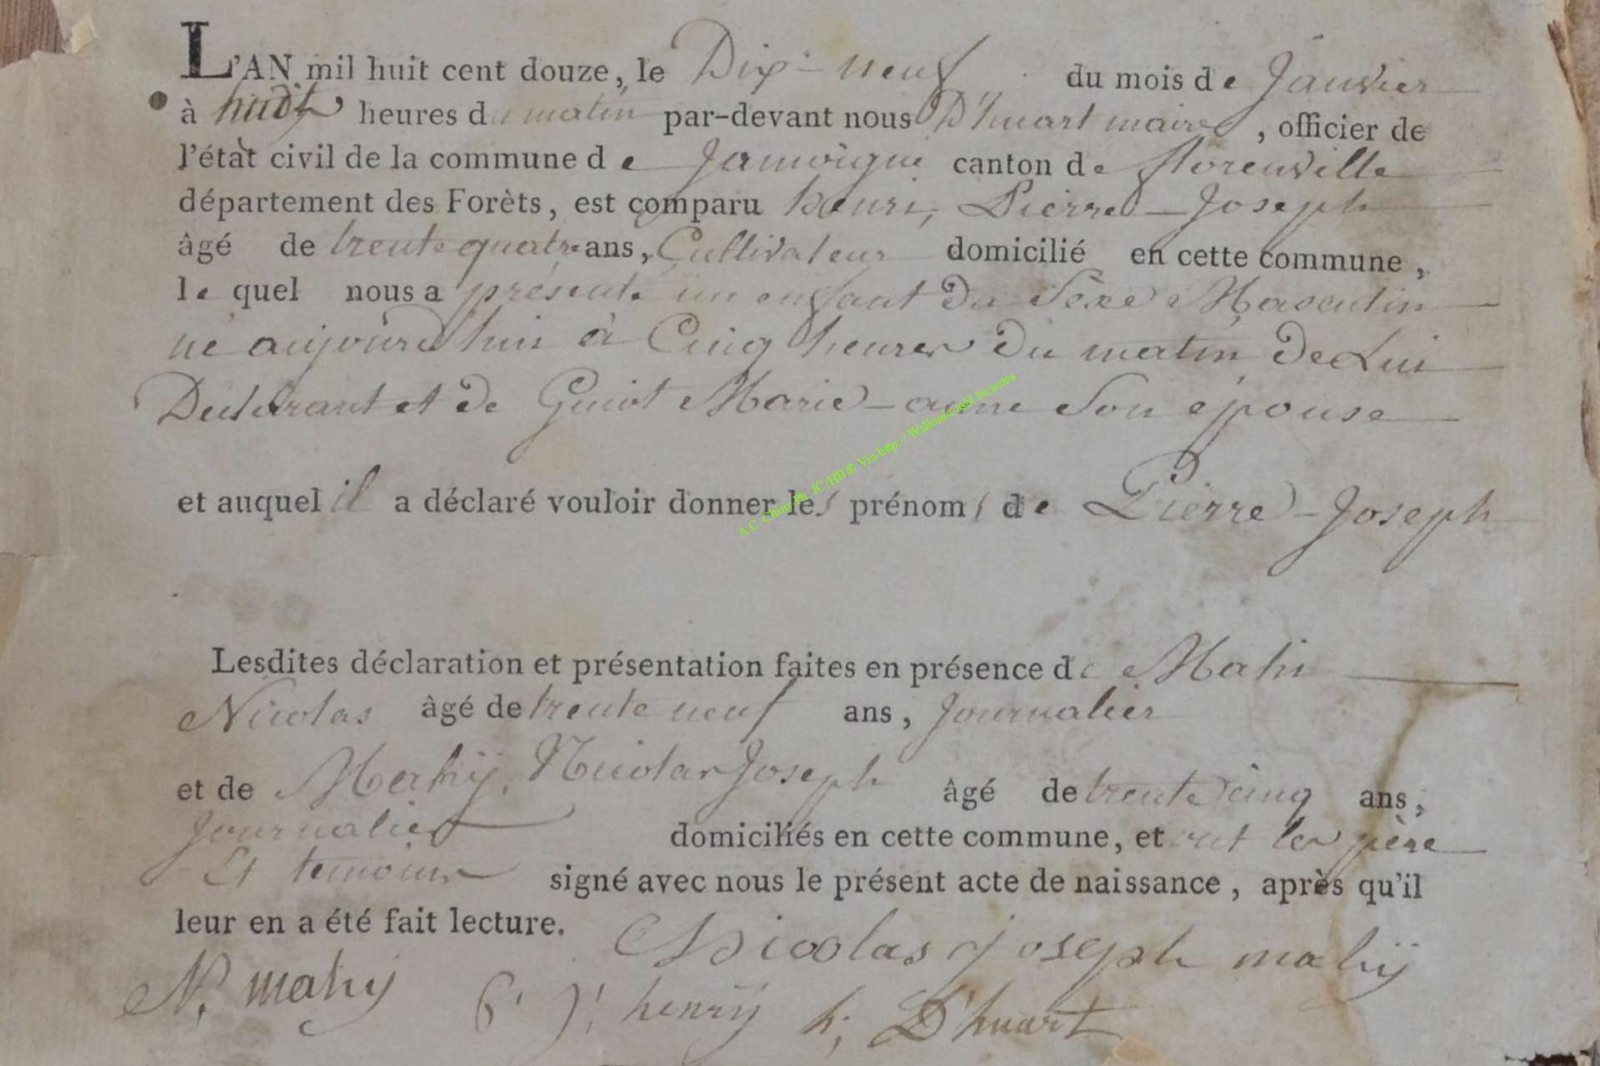 L'AN mil huit cent douze, le Dix-neuf du mois de Janvier
à huit heures du matin par-devant nous D'huart maire, officier de
l'état civil de la commune de Jamoigne canton de florenville
département des Forèts, est comparu henri, Pierre-Joseph
âgé de trente quatre ans, Cultivateur domicilié en cette commune,
lequel nous a présenté un enfant du Sèxe Masculin
né aujourd'hui à Cinq heures du matin, de Lui
Déclarant et de Guiot Marie- son épouse
et auquel il a déclaré vouloir donner les prénoms de Pierre-Joseph
Lesdites déclaration et présentation faites en présence de Mahi
Nicolas âgé de trente neuf ans, Journalier
et de Mahij, Nicolas Joseph âgé de trente Cinq ans,
Journalier domiciliés en cette commune, et ont les père
Et temoins signé avec nous le présent acte de naissance, après qu'il
leur en a été fait lecture.
Nicolas joseph mahij
N. mahij P. J. henrij h; D'huart